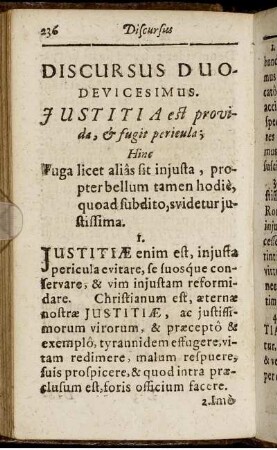 236 Discursus
DISCURSUS DUO-
DEVICESIMUS.
JUSTITIA est provi-
da, & fugit pericula;
Hinc
Fuga licet aliâs sit injusta, pro-
pter bellum tamen hodiè,
quoad subdito,svidetur ju-
stissima.
1.
JUSTITIÆ enim est, injusta
pericula evitare, se suosque con-
servare, & vim injustam reformi-
dare. Christianum est, æternæ
nostræ JUSTITIÆ, ac justissi-
morum virorum, & præceptô &
exemplô, tyrannidem effugere, vi-
tam redimere, malum respuere,
suis prospicere, & quod intra præ-
clusum est, foris officium facere.
2.Imò